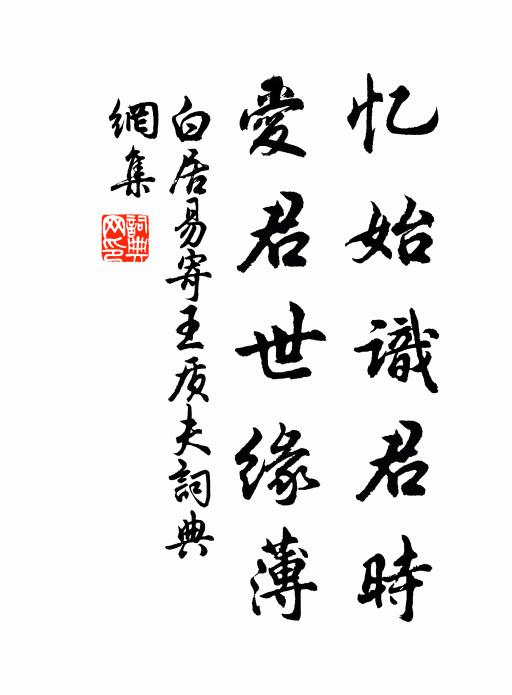 忆始識君時
愛君世缘薄
白居易寄王质夫詞典
網集
詞典
网印